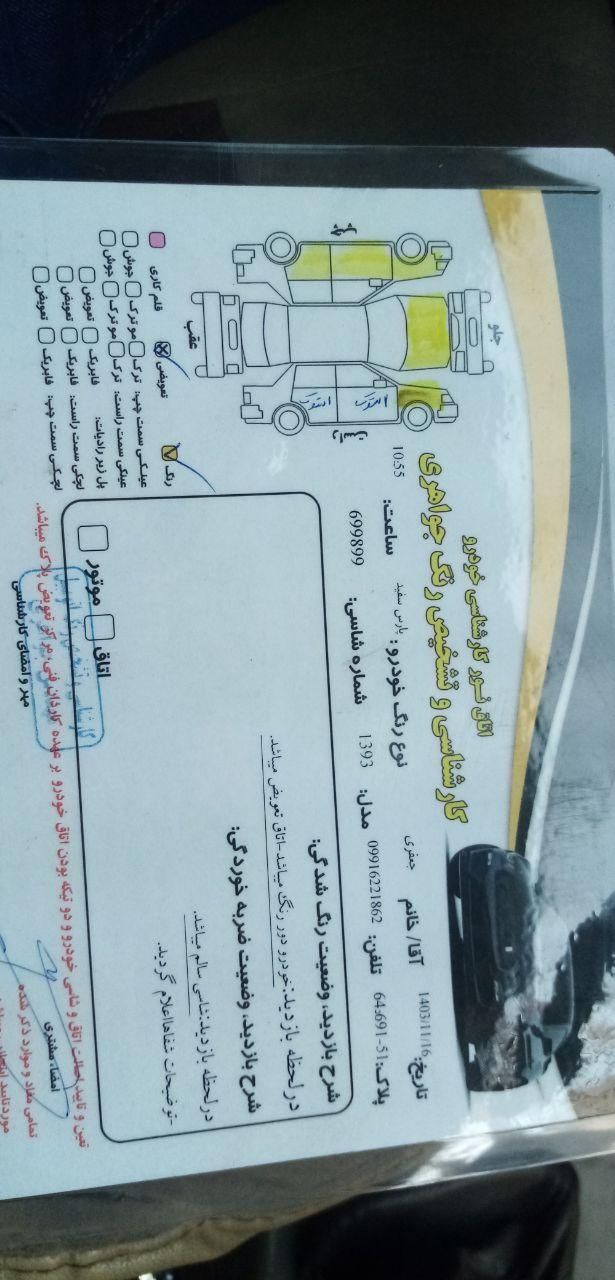 اتاق نور کارشناسی خودرو
کارشناسی و تشخیص رنگ جواهری
تاریخ: 1403/11/16 آقا/ خانم جعفری نوع رنگ خودرو: پارس سفید ساعت: 10:55
پلاک: 51-691د64 تلفن: 09916221862 مدل: 1393 شماره شاسی: 699899
شرح بازدید، وضعیت رنگ شدگی:
در لحظه بازدید: خودرو دور رنگ میباشد-اتاق تعویض میباشد.
شرح بازدید، وضعیت ضربه خوردگی:
در لحظه بازدید: شاسی سالم میباشد.
-توضیحات شفاها اعلام گردید.
اتاق موتور
جلو
عقب
استوک
استوک
رنگ تعویضی قلم کاری
عینکی سمت چپ: ترک مو ترک جوش
عینکی سمت راست: ترک مو ترک جوش
پل زیر رادیات: فابریک تعویض
لچکی سمت راست: فابریک تعویض
لچکی سمت چپ: فابریک تعویض
تعین و تایید اصالت اتاق و شاسی خودرو و دو تیکه بودن اتاق خودرو بر عهده کاردان فنی مرکز تعویض پلاک میباشد.
مهر و امضای کارشناسی
امضاء مشتری
تمامی مفاد و موارد ذکر شده
مورد تایید اینجانب